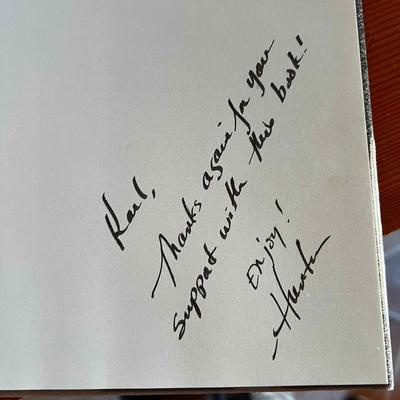 Karl,
Thanks again for your
support with this book!
Enjoy!
-Hunter